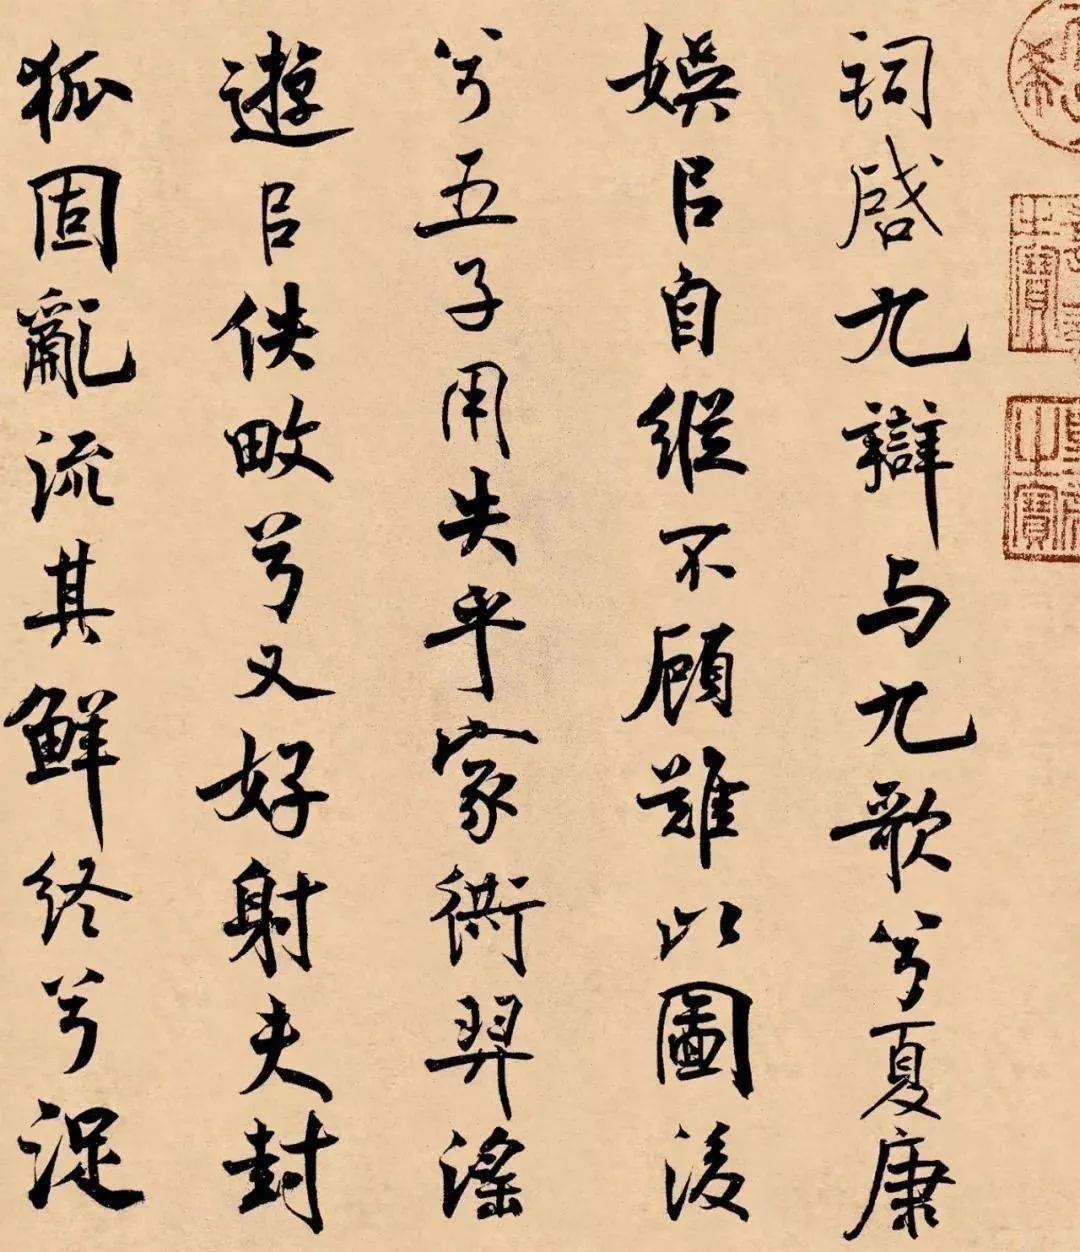 詞啓九辯与九歌兮夏康
娛㠯自縱不顧難以圖後
兮五子用失乎家衖羿滛
遊㠯佚畋兮又好射夫封
狐固亂流其鮮終兮浞
之寶
之寶